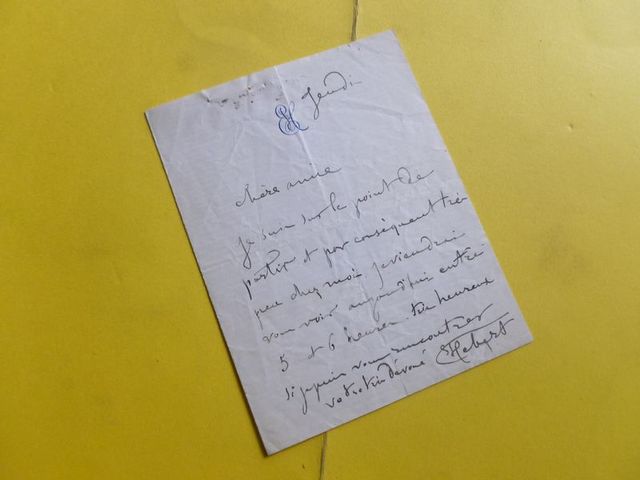 EH Jeudi
chère amie
Je suis sur le point de
partir et par conséquent très
peu chez moi. Je viendrai
vous voir aujourd'hui entre
5 et 6 heures. très heureux
si je puis vous rencontrer
votre très dévoué EHebert